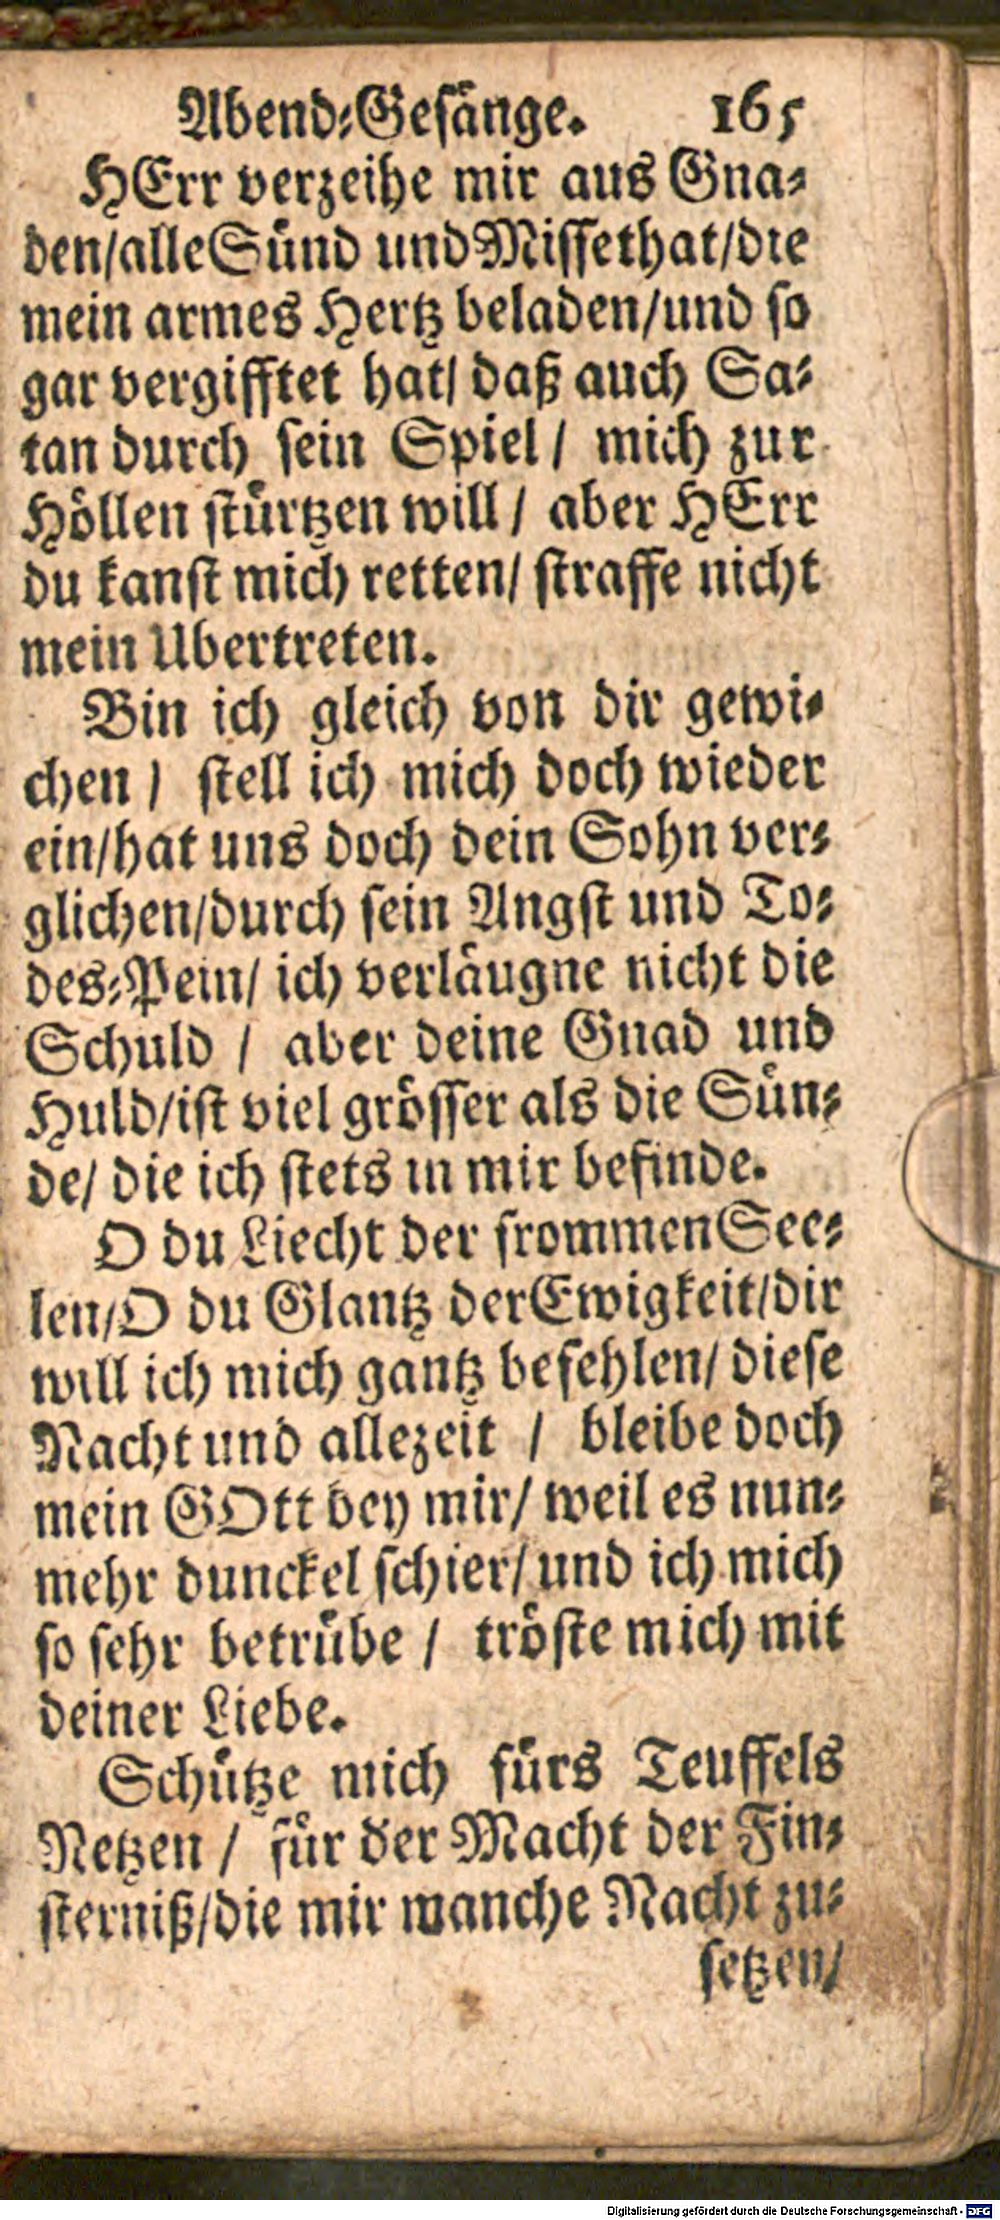 Abend-Gesänge. 165
HErr verzeihe mir aus Gna-
den/alle Sünd und Missethat/die
mein armes Hertz beladen/und so
gar vergifftet hat/ daß auch Sa-
tan durch sein Spiel / mich zur
Höllen stürtzen will / aber HErr
du kanst mich retten/ straffe nicht
mein Ubertreten.
Bin ich gleich von dir gewi-
chen / stell ich mich doch wieder
ein/hat uns doch dein Sohn ver-
glichen/durch sein Angst und To-
des-Pein/ ich verläugne nicht die
Schuld / aber deine Gnad und
Huld/ist viel grösser als die Sün-
de/ die ich stets in mir befinde.
O du Liecht der frommen See-
len/O du Glantz der Ewigkeit/dir
will ich mich gantz befehlen/ diese
Nacht und allezeit / bleibe doch
mein GOtt bey mir/ weil es nun-
mehr dunckel schier/ und ich mich
so sehr betrübe / tröste mich mit
deiner Liebe.
Schütze mich fürs Teuffels
Netzen / für der Macht der Fin-
sterniß/die mir manche Nacht zu-
setzen/
Digitalisierung gefördert durch die Deutsche Forschungsgemeinschaft - DFG